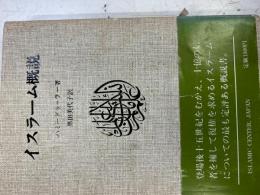 イスラーム概説
ハミードゥッラー著
黒田美代子訳
登場後十五世紀をむかえ、十億の信
者を擁して復権を求めるイスラーム
についての最も定評ある概説書。
ISLAMIC CENTER, JAPAN